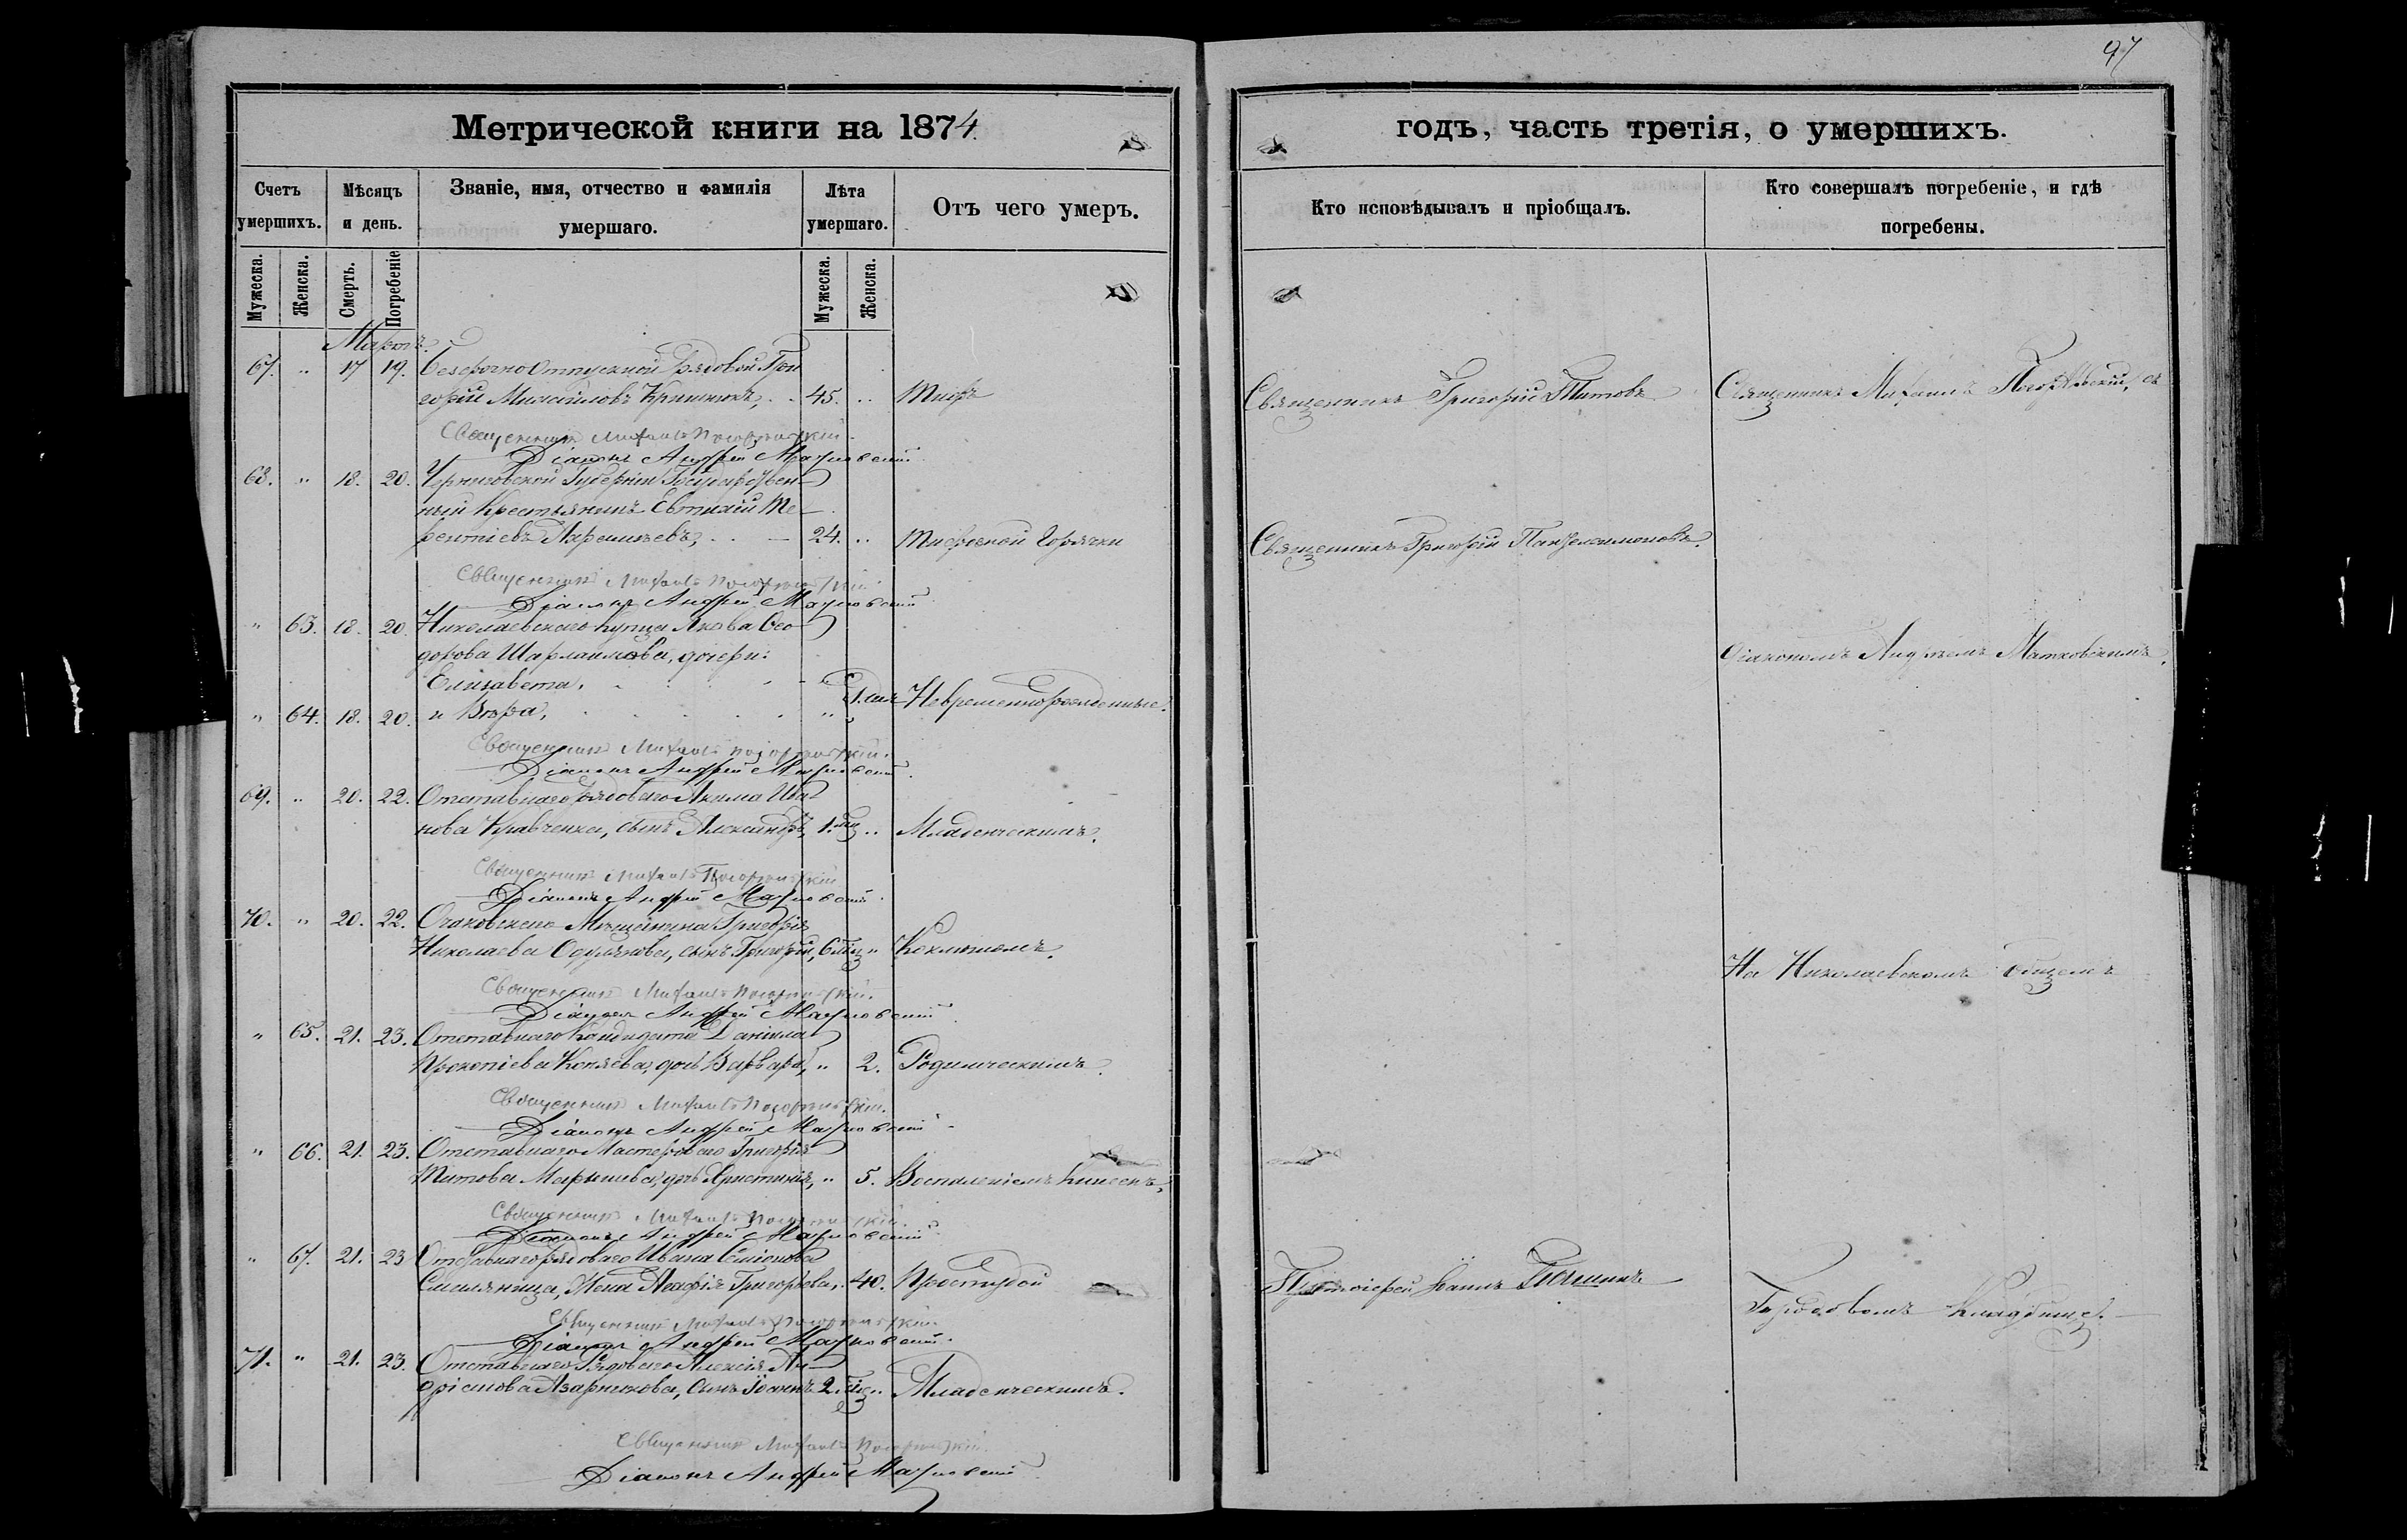 97
Метрической книги на 1874.
годъ, часть третія, о умершихъ.
Счетъ умершихъ.
Мѣсяцъ и день.
Званіе, имя, отчество и фамилія умершаго.
Лѣта умершаго.
Отъ чего умеръ.
Кто исповѣдывалъ и пріобщалъ.
Кто совершалъ погребеніе, и гдѣ погребены.
Мужеска. Женска. Смерть. Погребеніе Мужеска. Женска.
Мартъ.
67. " 17 19. Безсрочно Отпускной Рядовой Гри
горій Михайловъ 45. " Тифъ
Священникъ Григорій Титовъ
Священникъ Михаилъ съ
Священникъ Михаилъ
Діаконъ Андрей
68. " 18. 20. Черниговской Губерніи Государствен
ный Крестьянинъ Евтихій Те
рентіевъ 24. " Тифозной Горячки
Священникъ Григорій Пантелеимоновъ.
Священникъ Михаилъ
Діаконъ Андрей
" 63. 18. 20. Николаевскаго купца Якова Ѳео
дорова Шарлаимова, дочери:
Діакономъ Андреемъ
Елизавета,
1 дня Невременнорожденные.
" 64. 18. 20. и Вѣра, "
Священникъ Михаилъ
Діаконъ Андрей
69. " 20. 22. Отставнаго рядоваго Акима Ива
нова Кравченка, сынъ Александръ, 1. мц " Младенческимъ.
Священникъ Михаилъ
Діаконъ Андрей
70. " 20. 22. Очаковскаго Мѣщанина Григорія
Николаева сынъ Григорій, 6 мц " Коклюшемъ.
На Николаевскомъ Общемъ
Священникъ Михаилъ
Діаконъ Андрей
" 65. 21. 23. Отставнаго Кандидата Даніила
Прокопіева дочь Варвара, " 2. Родимческимъ.
Священникъ Михаилъ
Діаконъ Андрей
" 66. 21. 23. Отставнаго Мастероваго Григорія
Титова дочь Христинія, " 5. Воспаленіемъ кишекъ.
Священникъ Михаилъ
Діаконъ Андрей
" 67. 21. 23 Отставнаго рядоваго Ивана
жена Агафія Григорьева, " 40. Простудой
Протоіерей Іоаннъ
Городовомъ Кладбище.
Священникъ Михаилъ
Діаконъ Андрей
71. " 21. 23. Отставнаго Рядоваго Алексія Ан
сынъ Іоаннъ 2. мц " Младенческимъ.
Священникъ Михаилъ
Діаконъ Андрей